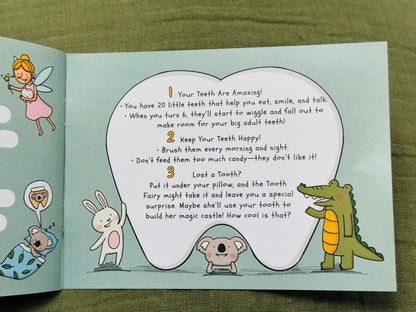 1 Your Teeth Are Amazing!
• You have 20 little teeth that help you eat, smile, and talk.
• When you turn 6, they'll start to wiggle and fall out to
make room for your big adult teeth!
2 Keep Your Teeth Happy!
• Brush them every morning and night.
• Don't feed them too much candy—they don't like it!
3 Lost a Tooth?
Put it under your pillow, and the Tooth
Fairy might take it and leave you a special
surprise. Maybe she'll use your tooth to
build her magic castle! How cool is that?